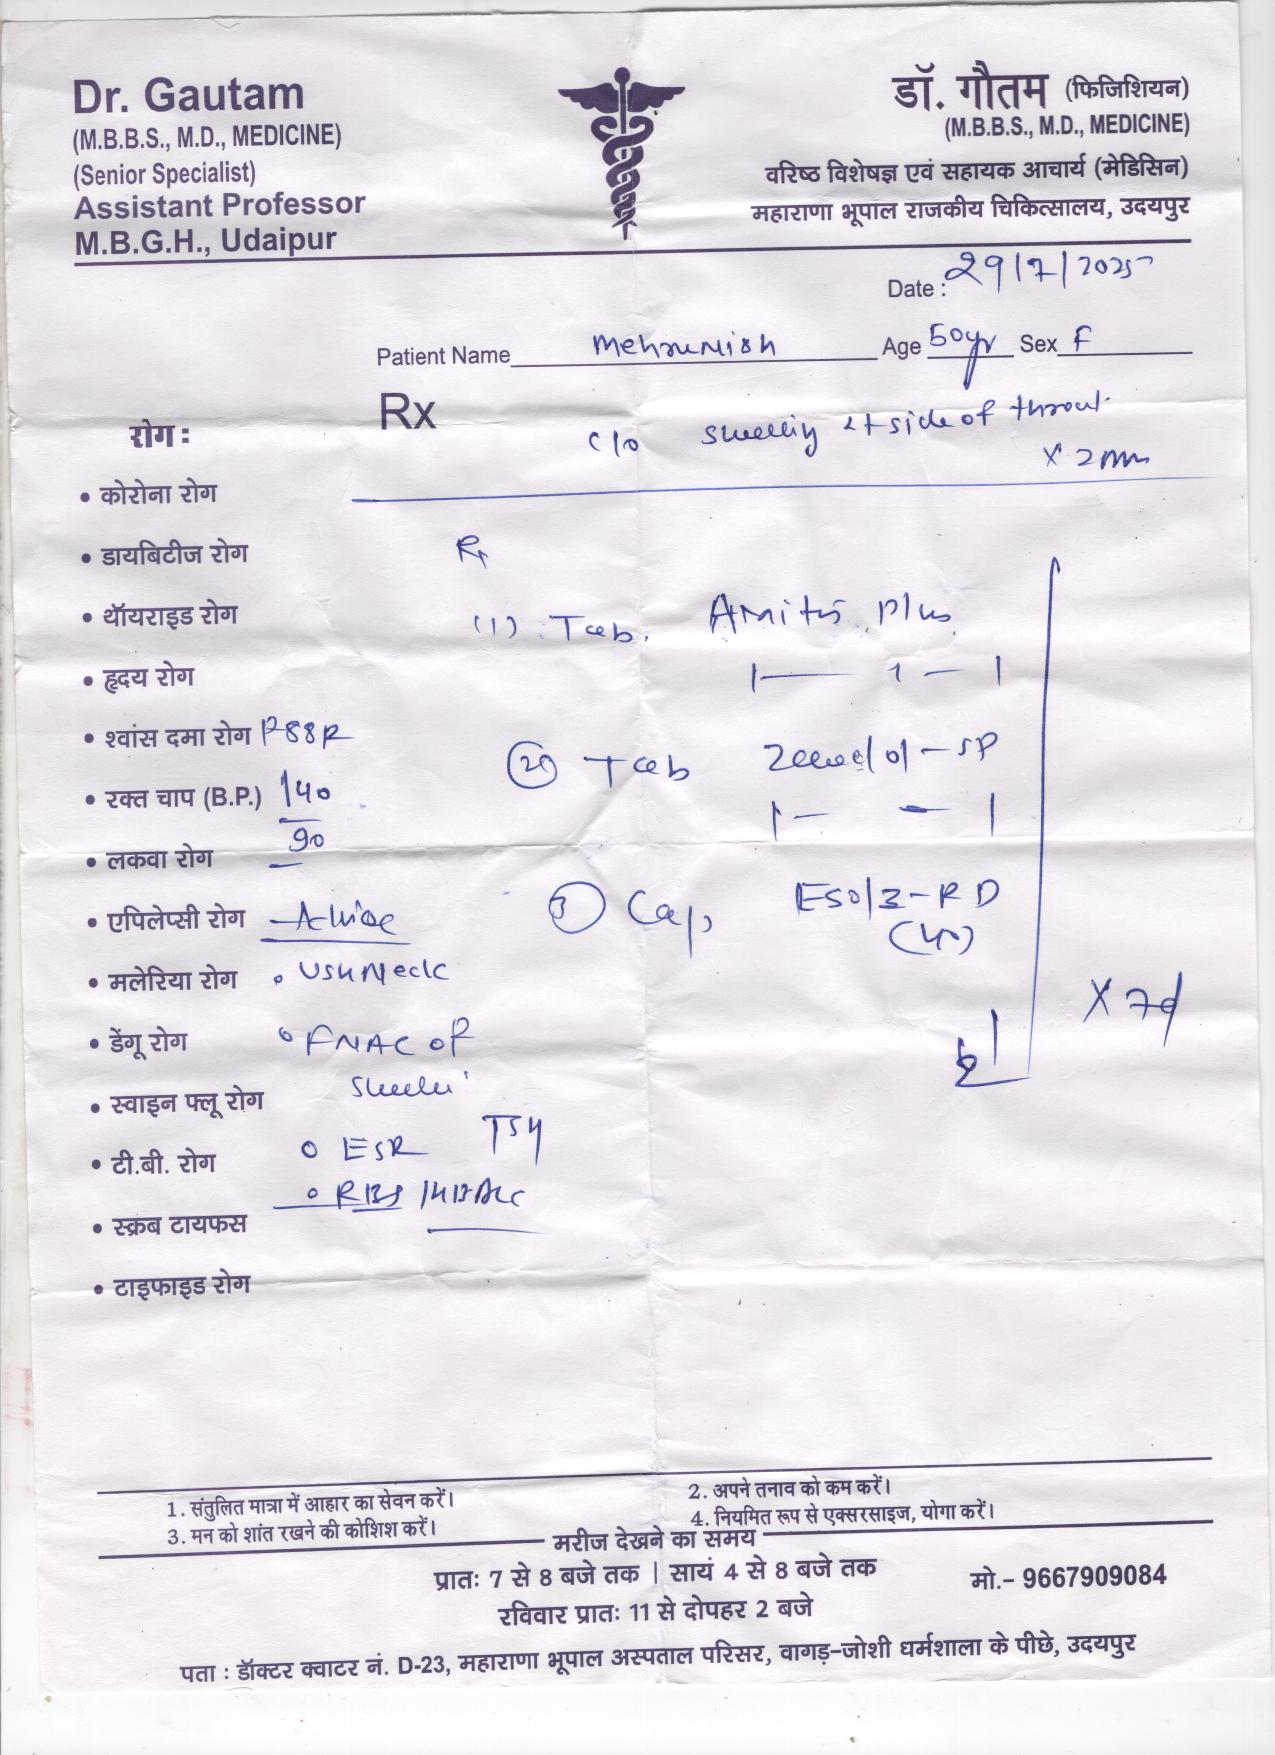 Dr. Gautam
(M.B.B.S., M.D., MEDICINE)
(Senior Specialist)
Assistant Professor
M.B.G.H., Udaipur
डॉ. गौतम (फिजिशियन)
(M.B.B.S., M.D., MEDICINE)
वरिष्ठ विशेषज्ञ एवं सहायक आचार्य (मेडिसिन)
महाराणा भूपाल राजकीय चिकित्सालय, उदयपुर
Date : 29/7/2025
Patient Name Mehrunish Age 50yr Sex F
Rx
c/o swelling side of throat
X 2
रोग :
• कोरोना रोग
• डायबिटीज रोग
• थॉयराइड रोग
• हृदय रोग
• श्वांस दमा रोग
• रक्त चाप (B.P.) 140
90
• लकवा रोग
• एपिलेप्सी रोग Advice
• मलेरिया रोग • USG Neck
• डेंगू रोग • FNAC of
swelling
• स्वाइन फ्लू रोग
• टी.बी. रोग • ESR TSH
• RBS / HbA1c
• स्क्रब टायफस
• टाइफाइड रोग
Rx
(1) Tab. Plus
1 — 1 — 1
(2) Tab -SP
1 — — 1
(3) Cap -RD
(40)
X 7d
1. संतुलित मात्रा में आहार का सेवन करें।
2. अपने तनाव को कम करें।
3. मन को शांत रखने की कोशिश करें।
4. नियमित रूप से एक्सरसाइज, योगा करें।
मरीज देखने का समय
प्रातः 7 से 8 बजे तक | सायं 4 से 8 बजे तक
मो.- 9667909084
रविवार प्रातः 11 से दोपहर 2 बजे
पता : डॉक्टर क्वाटर नं. D-23, महाराणा भूपाल अस्पताल परिसर, वागड़-जोशी धर्मशाला के पीछे, उदयपुर